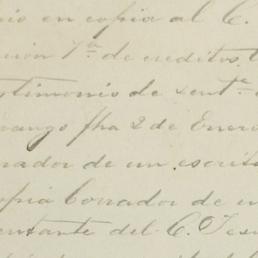 nio en copia al C.
ción 1ª de creditos
testimonio de sentª
rango fha 2 de Enero
nador de un escrito
opia borrador de
entante del C. Jesu